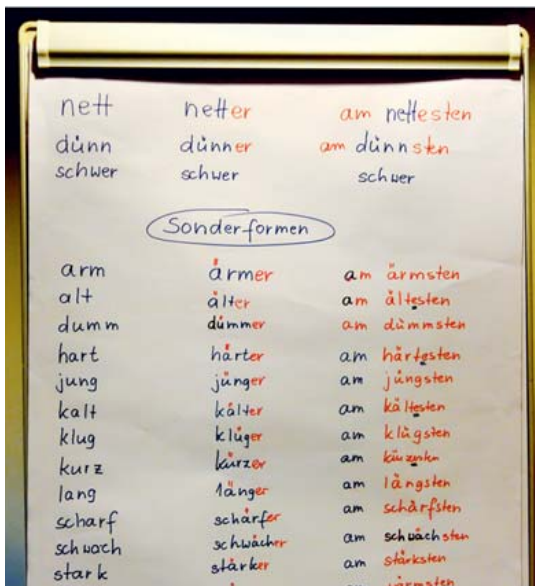 nett netter am nettesten
dünn dünner am dünnsten
schwer schwer schwer
Sonderformen
arm ärmer am ärmsten
alt älter am ältesten
dumm dümmer am dümmsten
hart härter am härtesten
jung jünger am jüngsten
kalt kälter am kältesten
klug klüger am klügsten
kurz kürzer am
lang länger am längsten
scharf schärfer am schärfsten
schwach schwächer am schwächsten
stark stärker am stärksten